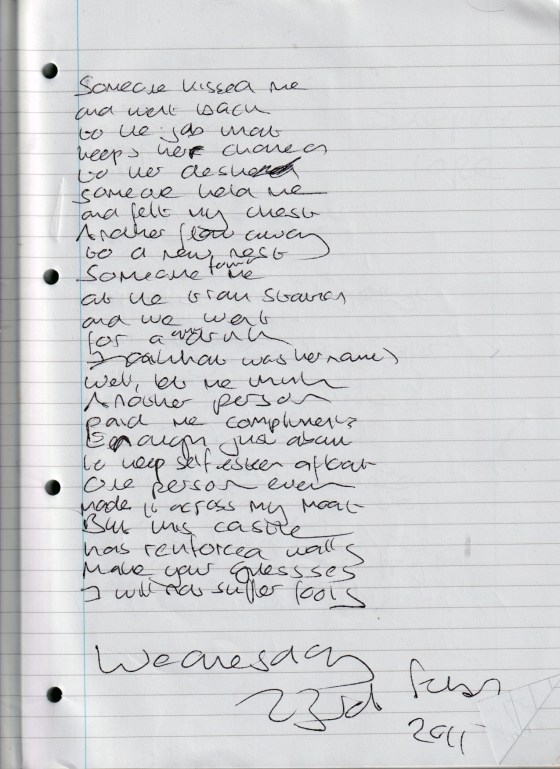 Someone kissed me
and went back
to the job that
keeps her chained
to her desk
someone held me
and felt my chest
Another flew away
to a new nest
Someone found me
at the train station
and we went
for a drink
(what was her name)
Well, let me think
Another person
paid me compliments
Enough just about
to keep self esteem afloat
One person even
made it across my moat
But this castle
has renforced walls
Make your guessses
I will not suffer fools
Wednesday
23rd Feb
2011